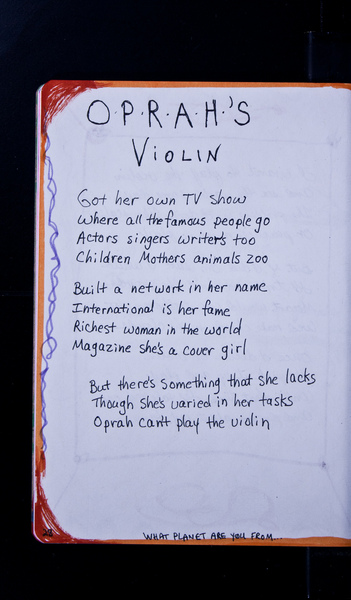 O·P·R·A·H·'S
VIOLIN
Got her own TV show
Where all the famous people go
Actors singers writers too
Children Mothers animals zoo
Built a network in her name
International is her fame
Richest woman in the world
Magazine she's a cover girl
But there's something that she lacks
Though she's varied in her tasks
Oprah can't play the violin
WHAT PLANET ARE YOU FROM...